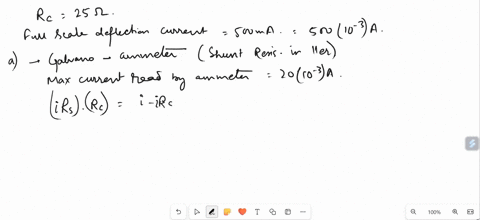 Rc = 25 Ω.
Full scale deflection current = 500 mA. = 500 (10⁻³) A.
a) → Galvano → ammeter (Shunt Resis. in ||el)
Max current read by ammeter = 20 (10⁻³) A.
(iRs).(Rc) = i - iRc
100%